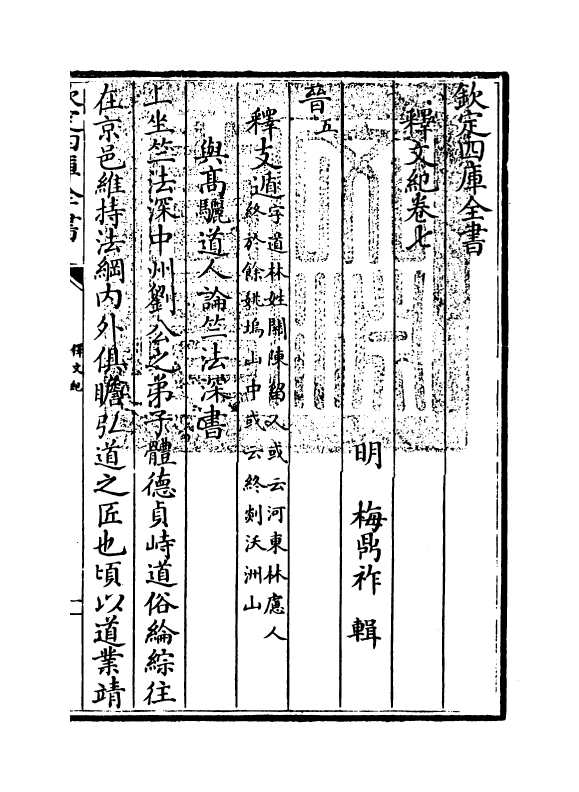 欽定四庫全書
釋文紀卷七
明 梅鼎祚 輯
晉五
釋支遁字道林姓關陳留人或云河東林慮人
終於餘姚塢山中或云終剡沃洲山
與髙驪道人論竺法深書
上坐竺法深中州劉公之弟子體德貞峙道俗綸綜往
在京邑維持法綱内外俱瞻弘道之匠也頃以道業靖
欽定四庫全書
釋文紀
一